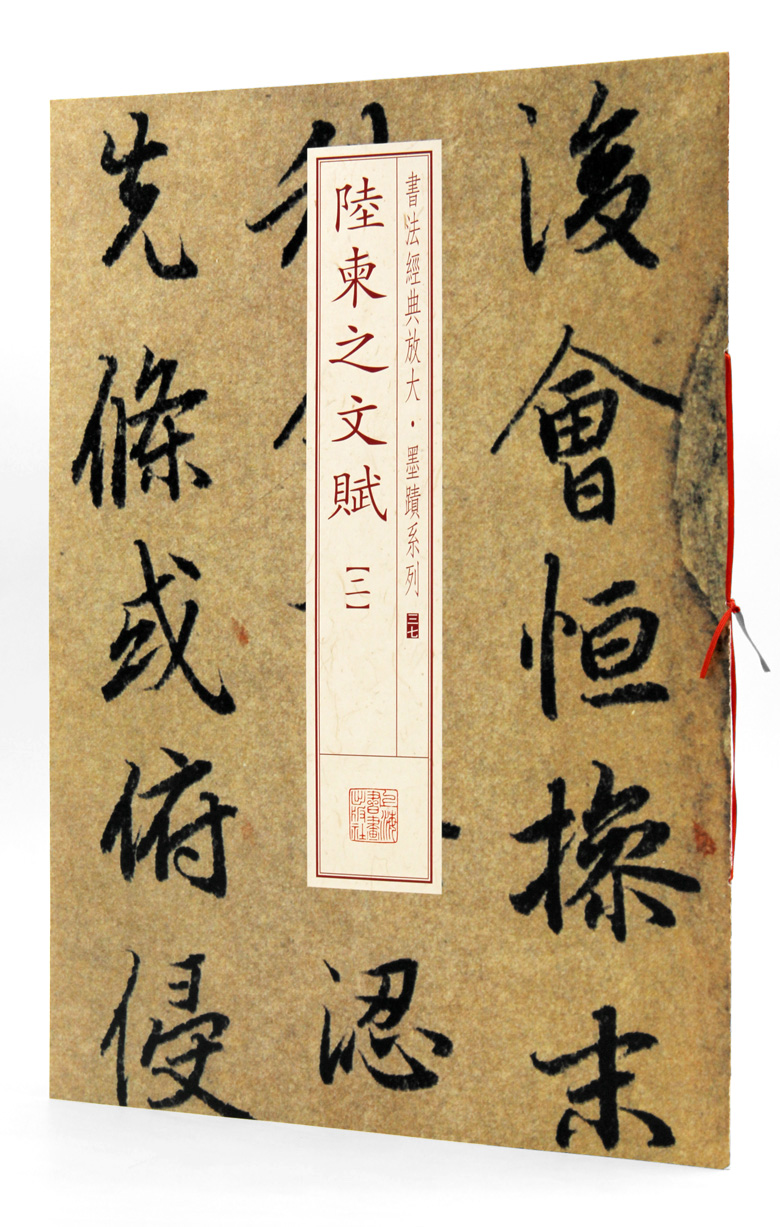 後會恒操末
書法經典放大·墨蹟系列 三七
陸柬之文賦【二】
上海書畫出版社
涊
先條或俯侵